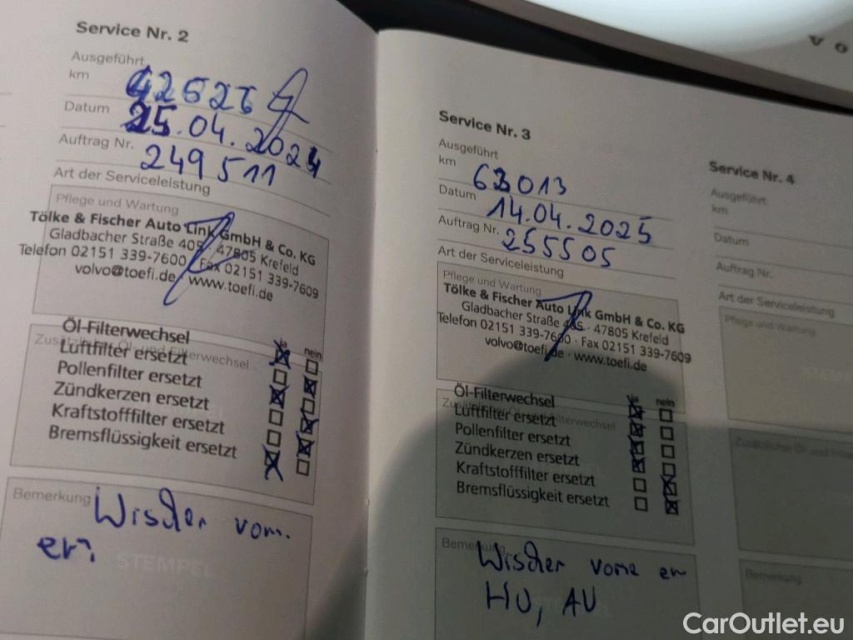 Service Nr. 2
Ausgeführt
km 42626
Datum 25.04.2024
Auftrag Nr. 249511
Art der Serviceleistung
Pflege und Wartung
Tölke & Fischer Auto Link GmbH & Co. KG
Gladbacher Straße 405 · 47805 Krefeld
Telefon 02151 339-7600 · Fax 02151 339-7609
volvo@toefi.de · www.toefi.de
ja nein
Öl-Filterwechsel
Luftfilter ersetzt
Pollenfilter ersetzt
Zündkerzen ersetzt
Kraftstofffilter ersetzt
Bremsflüssigkeit ersetzt
Bemerkung Wischer vorn.
ern.
STEMPEL
Service Nr. 3
Ausgeführt
km 63013
Datum 14.04.2025
Auftrag Nr. 255505
Art der Serviceleistung
Pflege und Wartung
Tölke & Fischer Auto Link GmbH & Co. KG
Gladbacher Straße 405 · 47805 Krefeld
Telefon 02151 339-7600 · Fax 02151 339-7609
volvo@toefi.de · www.toefi.de
ja nein
Öl-Filterwechsel
Luftfilter ersetzt
Pollenfilter ersetzt
Zündkerzen ersetzt
Kraftstofffilter ersetzt
Bremsflüssigkeit ersetzt
Bemerkung Wischer vorne er
HU, AU
Service Nr. 4
Ausgeführt
km
Datum
Auftrag Nr.
Art der Serviceleistung
Pflege und Wartung
Bemerkung
CarOutlet.eu